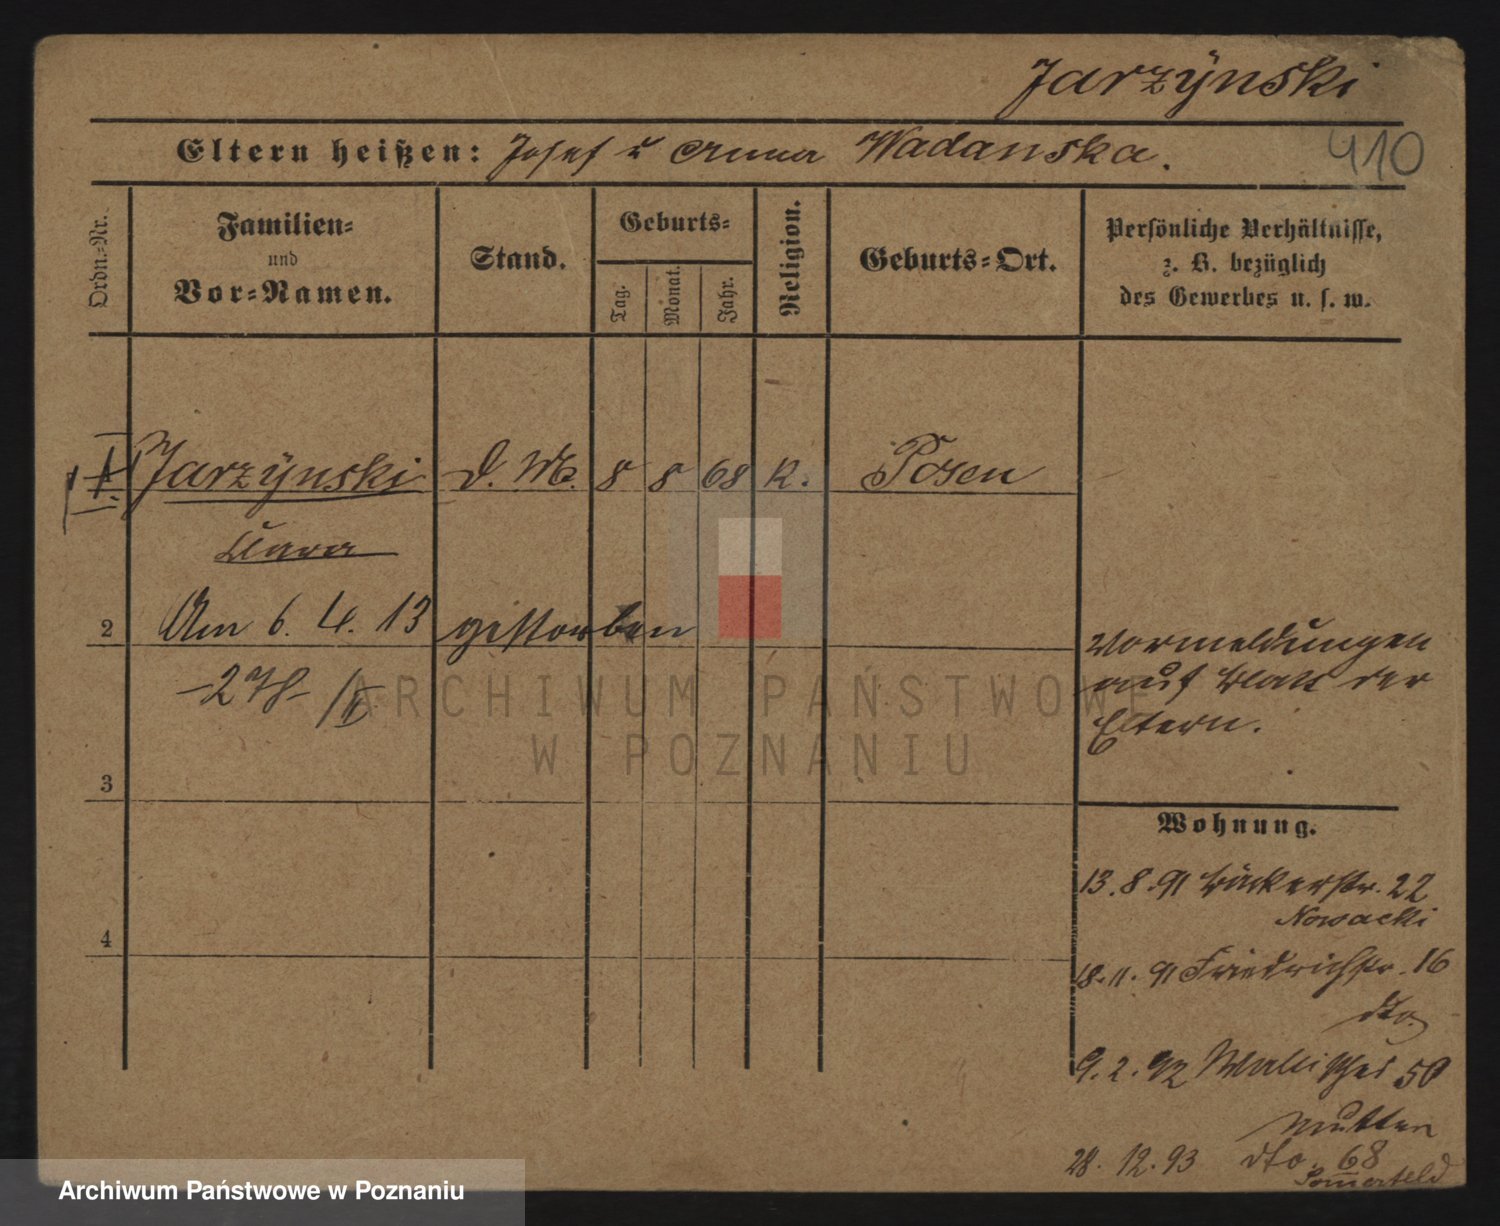 Jarzÿnski
410
Eltern heißen: Josef u Anna Wadanska.
Ordn.-Nr.
Familien-
und
Vor-Namen.
Stand.
Geburts-
Tag.
Monat.
Jahr.
Religion.
Geburts-Ort.
Persönliche Verhältnisse,
z. B. bezüglich
des Gewerbes u. s. w.
Jarzÿnski D. M. 8 8 68 K. Posen
Clara
2 Am 6. 4. 13 gestorben
Vormeldungen
auf Blatt der
Eltern.
-278- /II
ARCHIWUM PAŃSTWOWE
W POZNANIU
3
Wohnung.
13.8.91 Bäckerstr. 22
Nowacki
4
18.11.91 Friedrichstr. 16
dto.
9.2.92 Wallischei 50
Mutter
28.12.93 dto. 68
Somerfeld
Archiwum Państwowe w Poznaniu